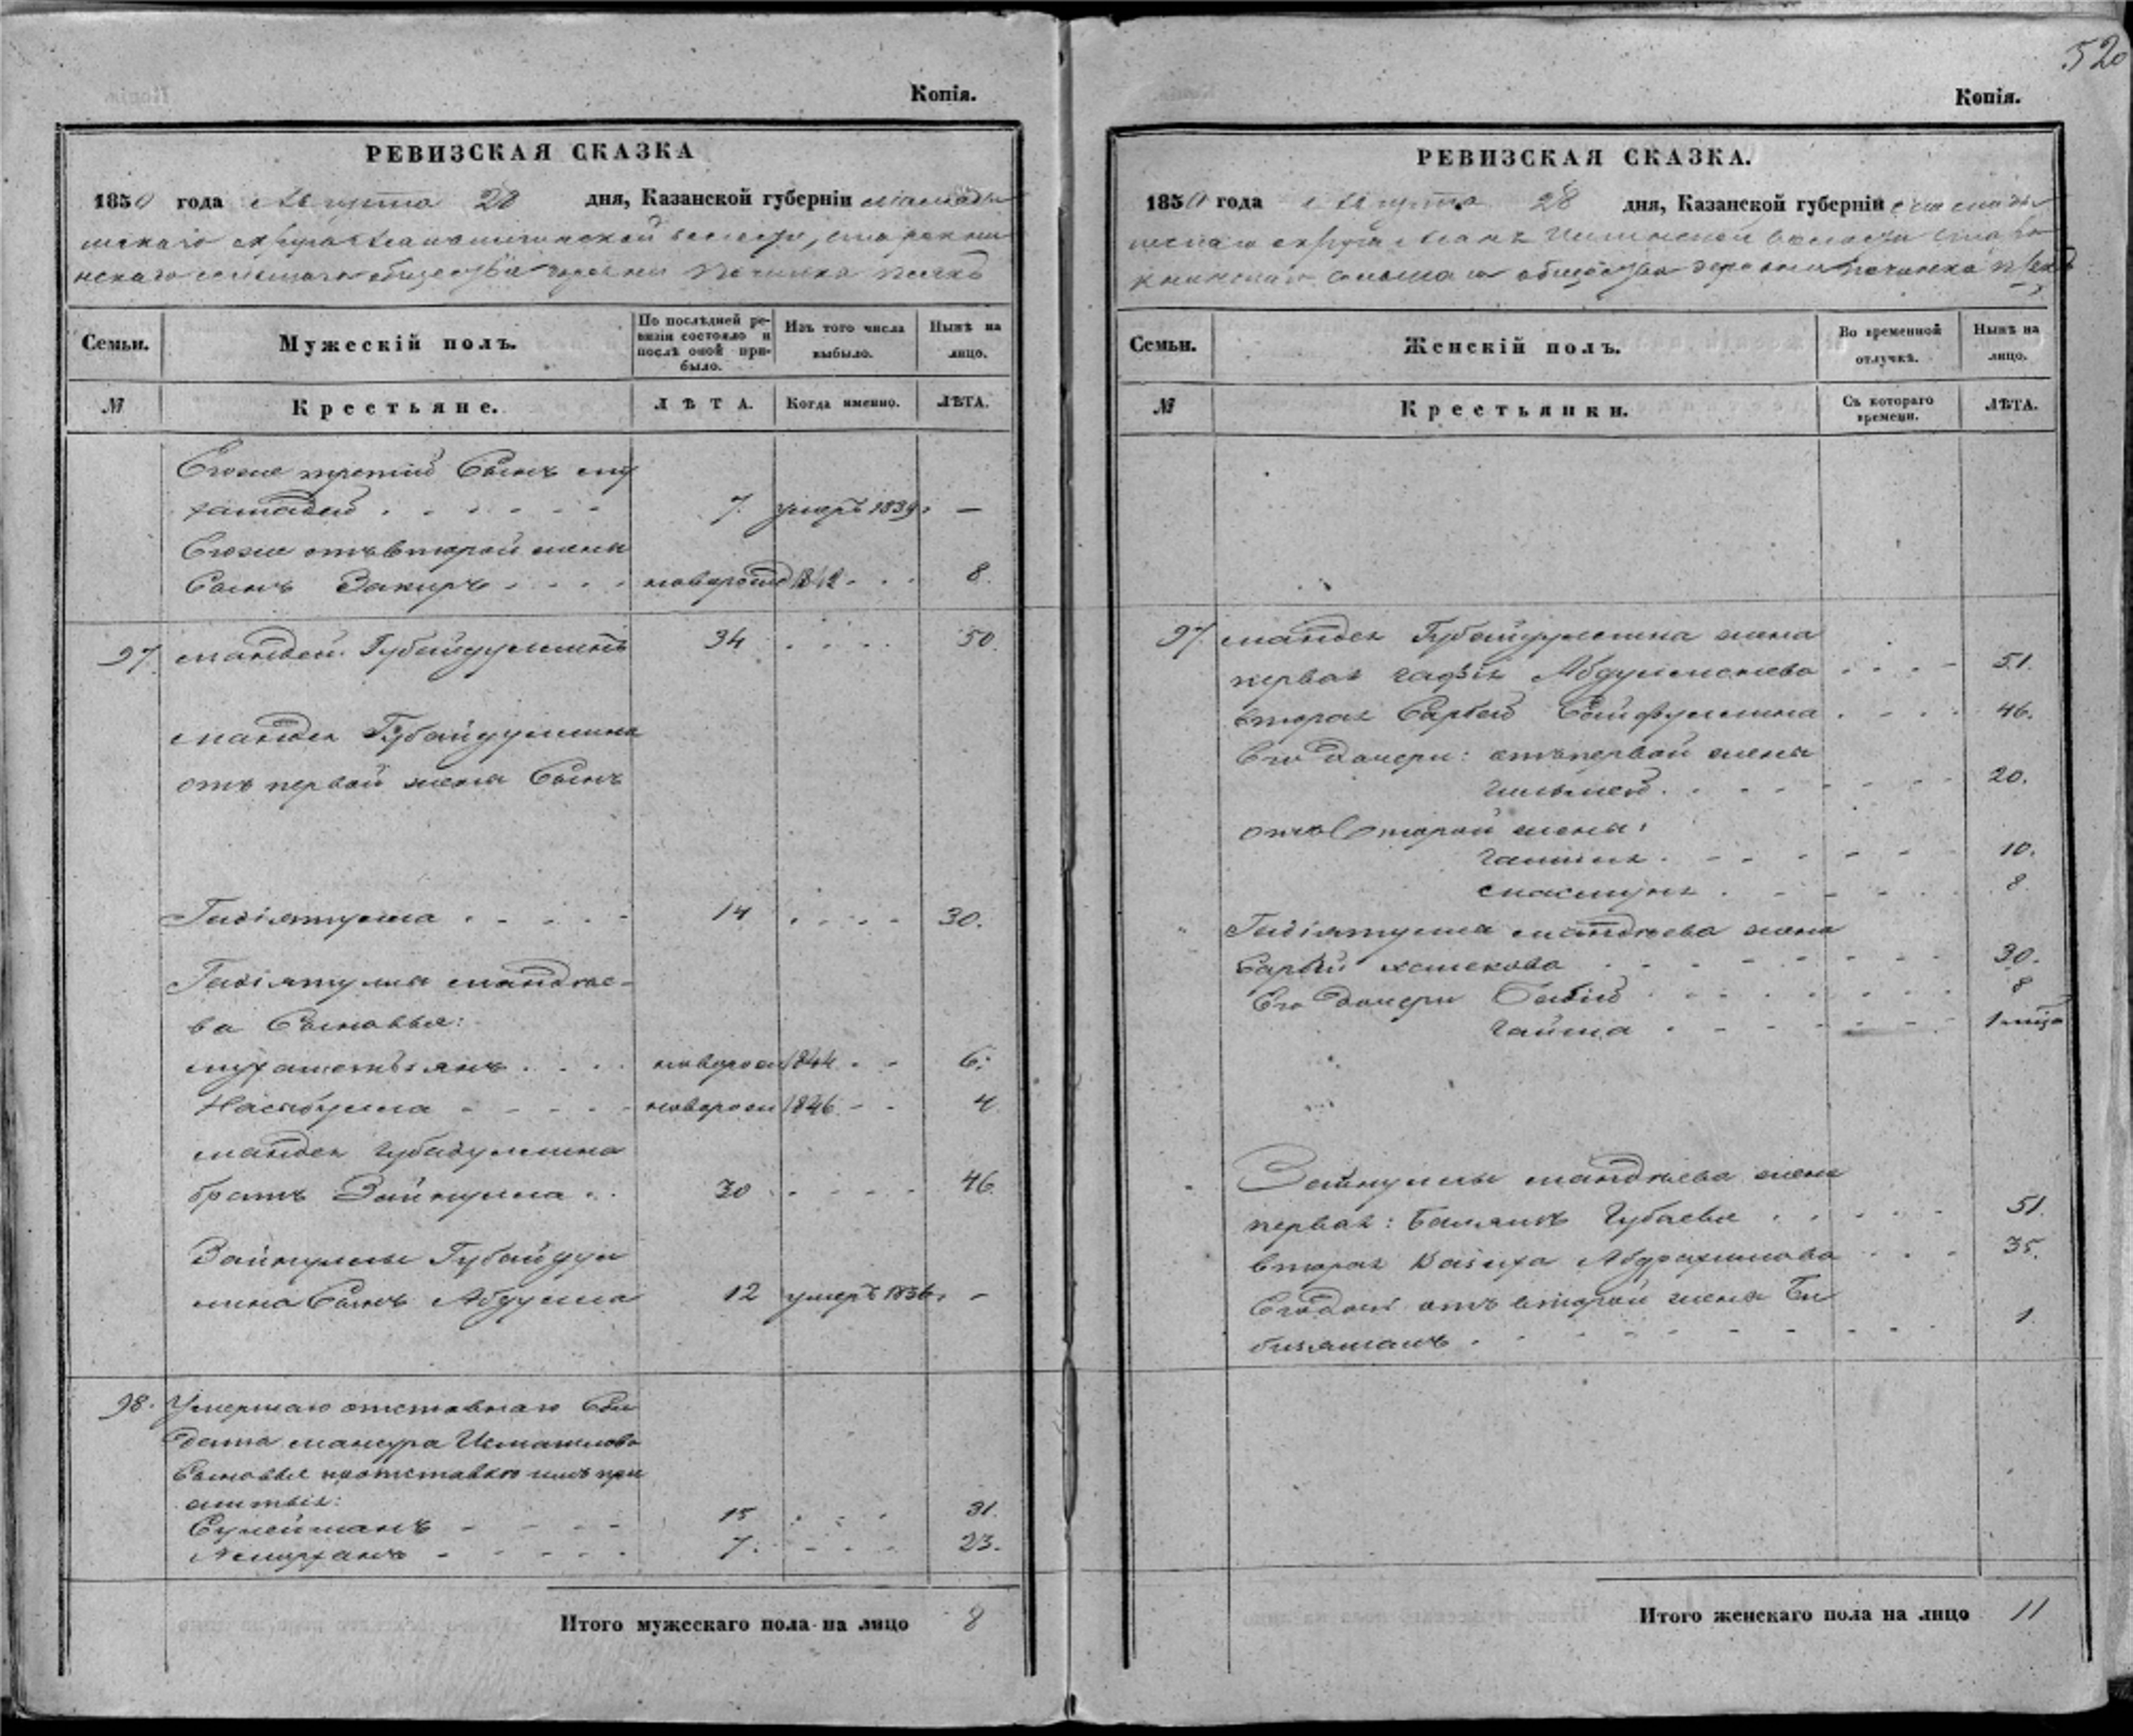 520
Копія.
РЕВИЗСКАЯ СКАЗКА
1850 года Августа 28 дня, Казанской губерніи Мамады
шскаго округа волости, старокни
нскаго сельскаго общества деревни Починка
Семьи. Мужескій полъ. По послѣдней ре-визіи состояло и послѣ оной при-было. Изъ того числа выбыло. Нынѣ на лицо.
№ Крестьяне. ЛѢТА. Когда именно. ЛѢТА.
Егоже третій Сынъ му
хамадей . . . . . 7. умеръ 1839. —
Егоже отъ второй жены
Сынъ Закиръ . . . . новорожд 1842 . . . 8.
97. Мандей Губайдуллинъ 34 . . . . 50.
Мандея Губайдуллина
отъ первой жены Сынъ
Гидіятулла . . . . . 14 . . . . 30.
Гидіятуллы Мандѣе-
ва Сыновья:
мухаметьянъ . . . . новорож 1844 . . 6.
Насыбулла - - - - - новорож 1846 - - 4.
Мандея Губайдуллина
братъ Зайнулла . . 30 . . . . 46.
Зайнуллы Губайдул
лина Сынъ Абдулла 12 умеръ 1836. -
98. Умершаго отставнаго Сол
дата мансура Исмагилова
Сыновья по отставкѣ имъ при
житыя:
Сулейманъ - - - - 15 . . . 31.
- - - - - 7. - - - 23.
Итого мужескаго пола на лицо 8
Копія.
РЕВИЗСКАЯ СКАЗКА.
1850 года Августа 28 дня, Казанской губерніи Мамады
шскаго округа волости Старо
книнскаго сельскаго общества деревни Починка
Семьи. Женскій полъ. Во временной отлучкѣ. Нынѣ на лицо.
№ Крестьянки. Съ котораго времени. ЛѢТА.
97. Мандея Губайдуллина жена
первая . . . . 51.
вторая Сарбей Сайфуллина . . . . 46.
Его Дочери: отъ первой жены
. . . . . . . 20.
отъ Второй жены:
. - - - - - - 10.
. - - - - - 8.
" Гидіятуллы Мандѣева жена
Сарбій . . - - - - - - 30.
Его Дочери . . . . . . . . 8
. - - - - - - 1 мѣся
" Зайнуллы Мандѣева жена
первая: Губаева . . . . . 51.
вторая Абдрахимова . . . 35.
Егодочь отъ второй жены Би
бизямалъ . - - - - - - - 1.
Итого женскаго пола на лицо 11